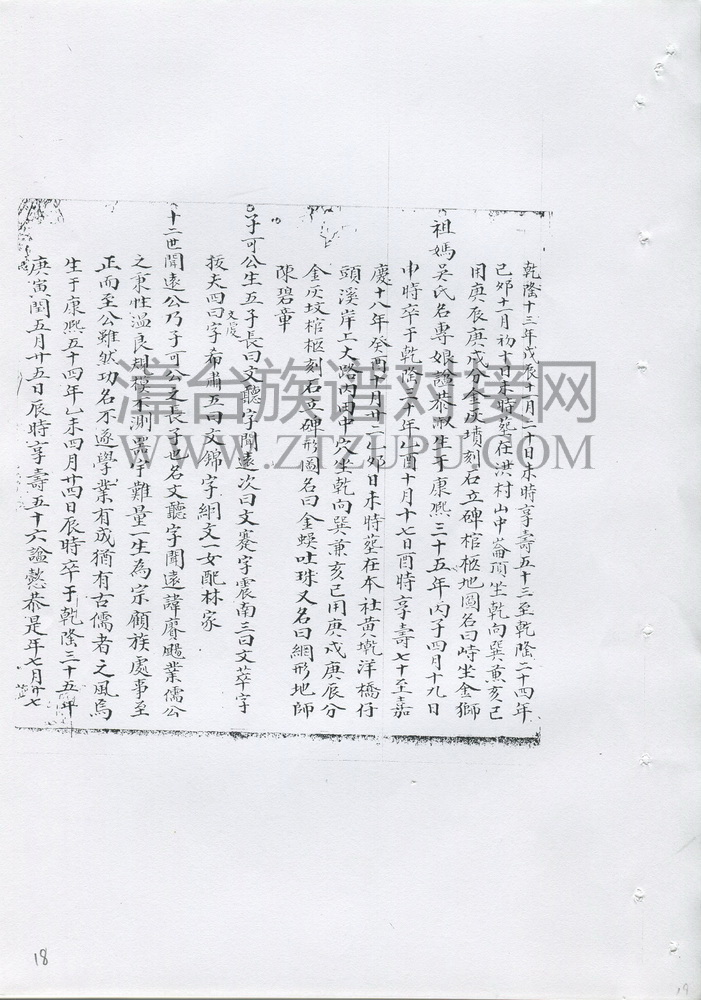 乾隆十三年戊辰十一月二十日未時享壽五十三至乾隆二十四年
己夘十一月初十日未時塟在洪村山中崙頂坐乾向巽兼亥己
用庚辰庚戍分金灰墳刻石立碑棺柩地圖名曰峙坐金獅
祖媽吳氏名專娘謚恭淑生于康熙三十五年丙子四月十九日
申時卒于乾隆三十年乙酉十月十七日酉時享壽七十至嘉
慶十八年癸酉十月廿二夘日未時塟在本社黄墘洋橋仔
頭溪岸上大路內田中穴坐乾向巽兼亥己用庚戍庚辰分
金灰坟棺柩刻石立碑形圖名曰金蜈吐珠又名曰網形地師
陳碧章
子可公生五子長曰文聽字聞遠次曰文蹇字震南三曰文萃字
拔夫四曰文度字希肅五曰文錦字絅文一女配林家
十二世聞遠公乃子可公之長子也名文聽字聞遠諱賡颺業儒公
之秉性溫良規模不測器宇難量一生為宗顧族處事至
正而至公雖然功名不遂學業有成猶有古儒者之風焉
生于康熙五十四年乙未四月廿四日辰時卒于乾隆三十五年
庚寅閏五月廿五日辰時享壽五十六謚懿恭是年七月廿七
漳台族谱对接网
WWW.ZTZUPU.COM
18
19